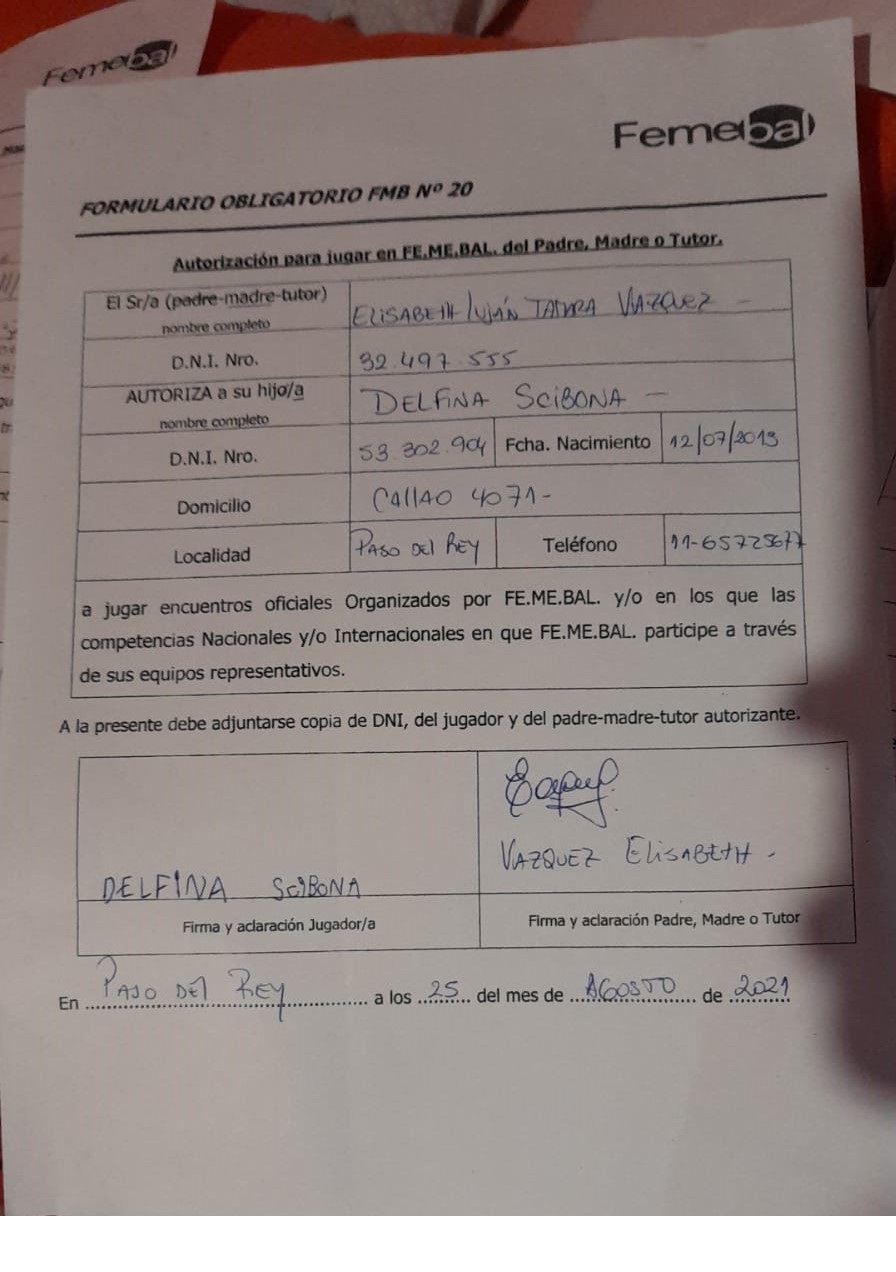 Femebal
Femebal
FORMULARIO OBLIGATORIO FMB Nº 20
Autorización para jugar en FE.ME.BAL. del Padre, Madre o Tutor.
El Sr/a (padre-madre-tutor) nombre completo ELISABETH LUJÁN VAZQUEZ -
D.N.I. Nro. 32.497.555
AUTORIZA a su hijo/a nombre completo DELFINA SCIBONA -
D.N.I. Nro. 53.302.904 Fcha. Nacimiento 12/07/2013
Domicilio CALLAO 4071-
Localidad PASO DEL REY Teléfono 11-65725677
a jugar encuentros oficiales Organizados por FE.ME.BAL. y/o en los que las
competencias Nacionales y/o Internacionales en que FE.ME.BAL. participe a través
de sus equipos representativos.
A la presente debe adjuntarse copia de DNI, del jugador y del padre-madre-tutor autorizante.
VAZQUEZ ELISABETH -
DELFINA SCIBONA
Firma y aclaración Jugador/a Firma y aclaración Padre, Madre o Tutor
En PASO DEL REY a los 25 del mes de AGOSTO de 2021